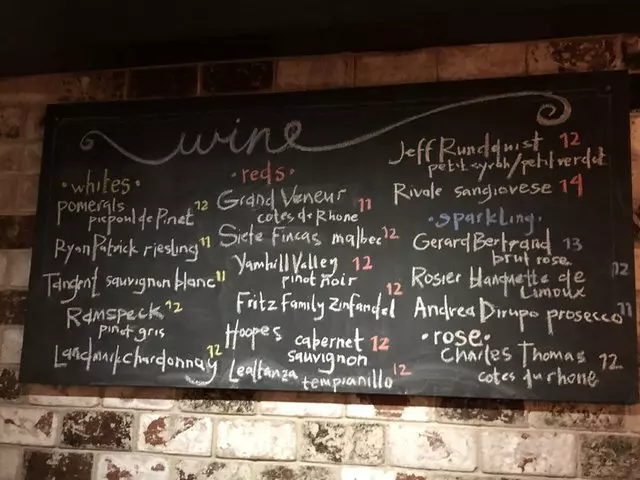 wine
• whites •
pomerals 12
picpoul de Pinet
Ryan Patrick riesling 11
Tangent sauvignon blanc 11
Ramspeck 12
pinot gris
Landmark chardonnay 12
• reds •
Grand Veneur 11
cotes de Rhone
Siete Fincas malbec 12
Yamhill Valley 12
pinot noir
Fritz Family Zinfandel 12
Hoopes cabernet 12
sauvignon
Lealtanza 12
tempranillo
Jeff Rundquist 12
petit syrah/petit verdot
Rivale sangiovese 14
• sparkling •
Gerard Bertrand 13
brut rose
Rosier blanquette de 12
Limoux
Andrea Dirupo prosecco 11
• rose •
Charles Thomas 12
cotes du rhone